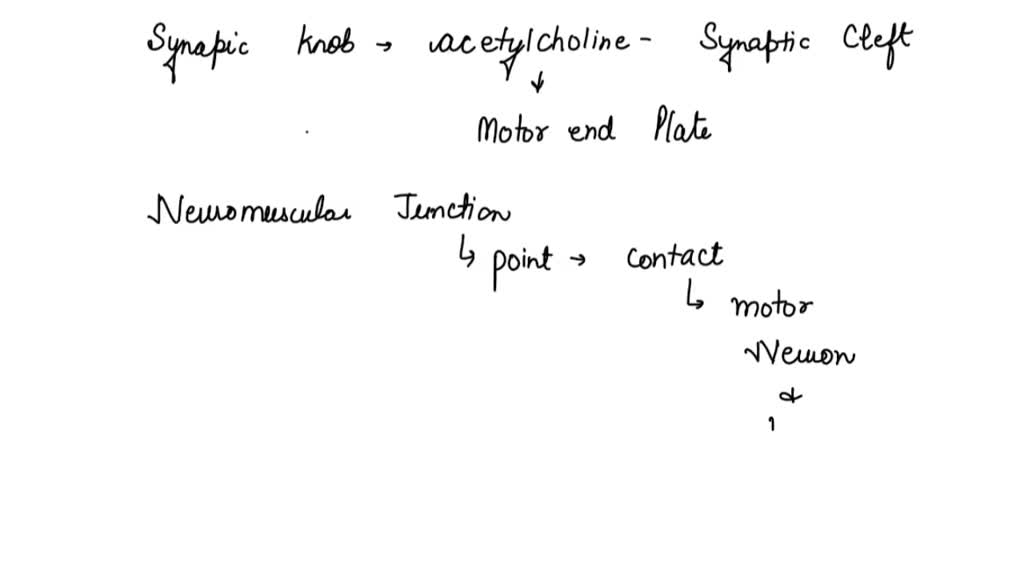 Synapic knob → acetylcholine - Synaptic Cleft
↓
Motor end Plate
Neuromuscular Junction
↳ point → contact
↳ motor
Neuron
&